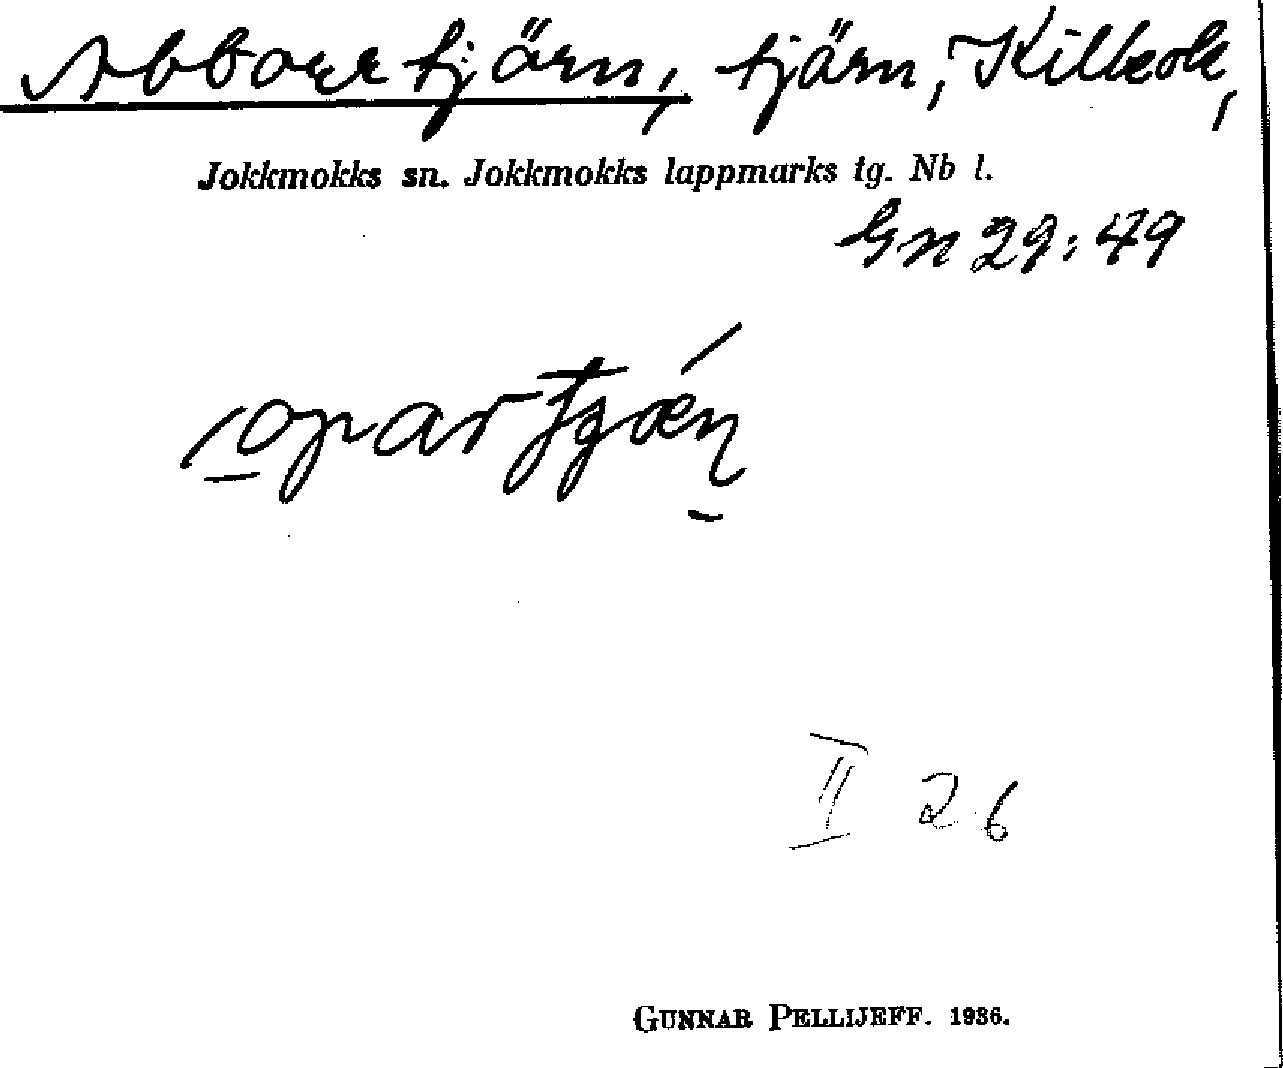 Abborrtjärn, tjärn, Killeok,
Jokkmokks sn. Jokkmokks lappmarks tg. Nb l.
Gn 29:49
II 26
GUNNAR PELLIJEFF. 1936.